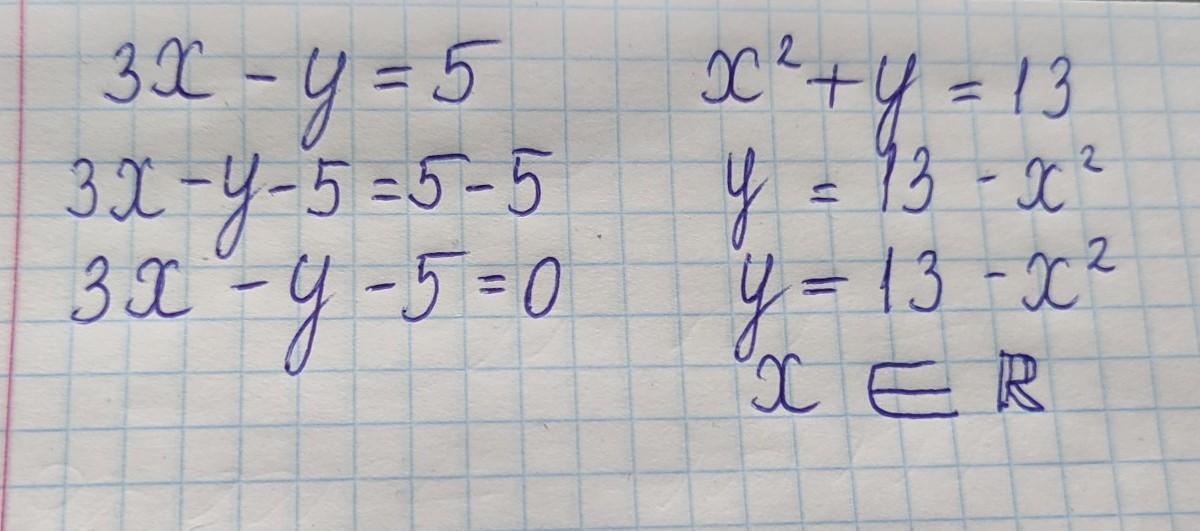 3x - y = 5
3x - y - 5 = 5 - 5
3x - y - 5 = 0
x² + y = 13
y = 13 - x²
y = 13 - x²
x ∈ ℝ